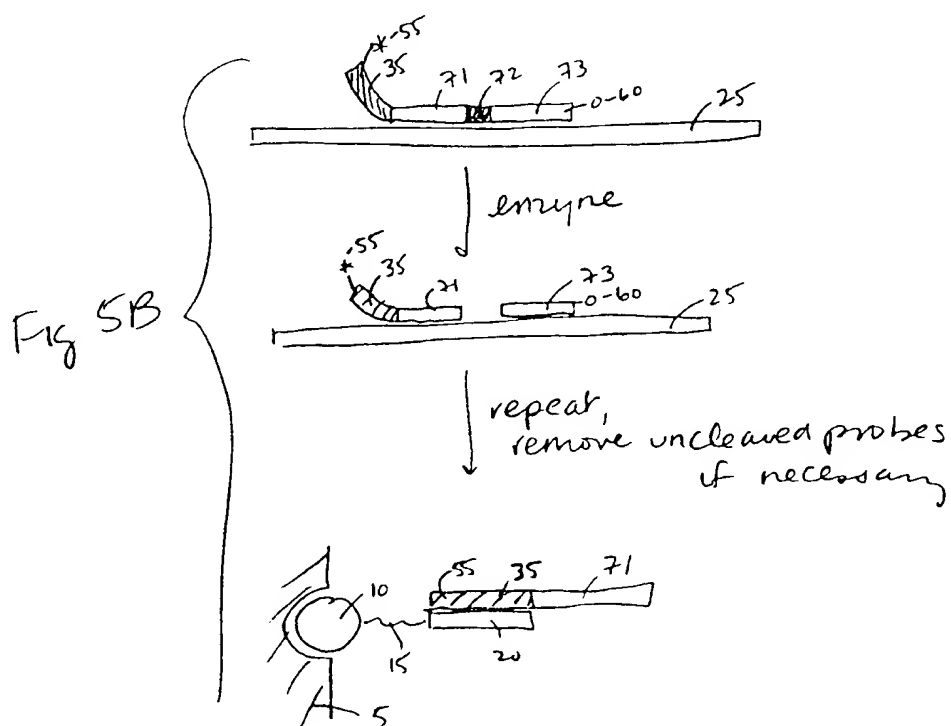 *-55
35
71
72
73
0-60
25
enzyne
Fig 5B
*-55
35
71
73
0-60
25
repeat,
remove uncleaved probes
if necessary
55
35
71
10
15
20
5